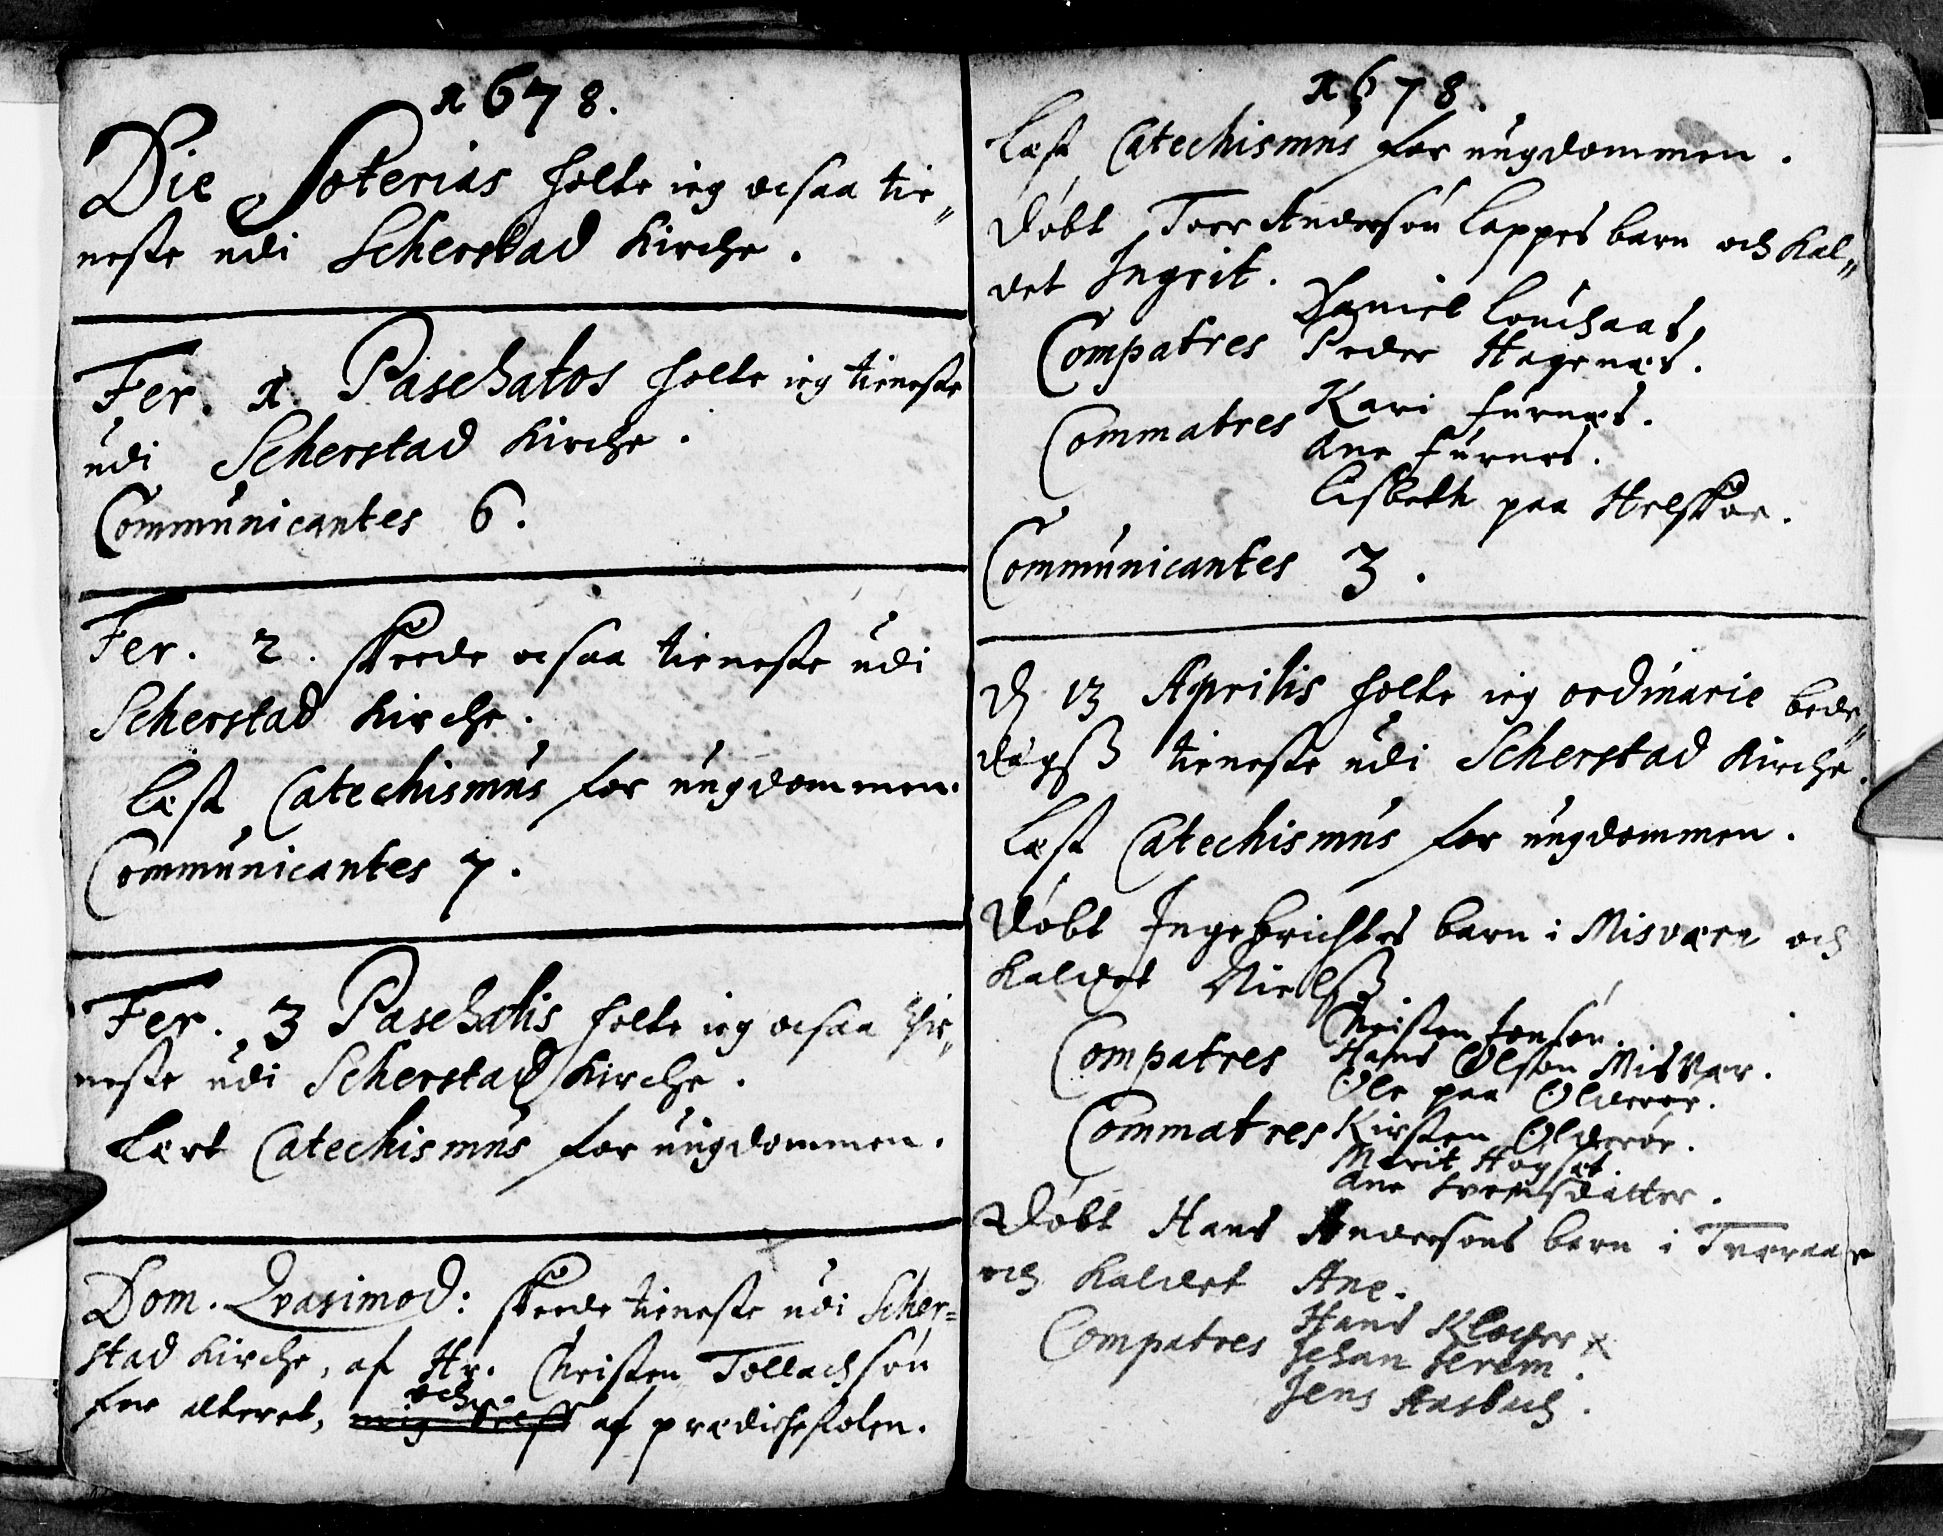 1678.
Die Soterias holte ieg ocsaa tie„
neste udi Scherstad Kirche.
Fer. 1. Paschatos holte ieg tieneste
udi Scherstad Kirche.
Communicantes 6.
Fer. 2. skeede ocsaa tieneste udi
Scherstad Kirche.
Læst Catechismus for ungdommen.
Communicantes 7.
Fer. 3 Paschatis holte ieg ocsaa thie„
neste udi Scherstad Kirche.
Lært Catechismus for ungdommen.
Dom. Qvasimod: skeede tieneste udi Scher=
stad Kirche, af Hr. Christen Tollachsøn
och
for alteret, mig selff af prædichestolen.
1678.
Læst Catechismus for ungdommen.
Døbt Toer Andersøn Lappes barn och kal„
det Ingrit.
Compatres Daniel Louchaas,
Peder Hagenæs.
Commatres Kari Furnæs.
Ane Furnes.
Lisbeth paa Helskoe.
Communicantes 3.
D 13 Aprilis holte ieg ordinarie bede„
dagsß tieneste udi Scherstad Kirche.
Læst Catechismus for ungdommen.
Døbt Ingebrichtes barn i Misvær och
kaldet Nielß
Compatres Christen Jonsøn.
Hans Olsøn Misvær.
Ole paa Olderøe.
Commatres Kirsten Olderøe.
Marit Hogset.
Ane Svensdatter.
Døbt Hans Andersøns barn i Tveraae
och kaldet Ane.
Compatres Hans Kloger x
Johan Jerem.
Jens Aasbach.